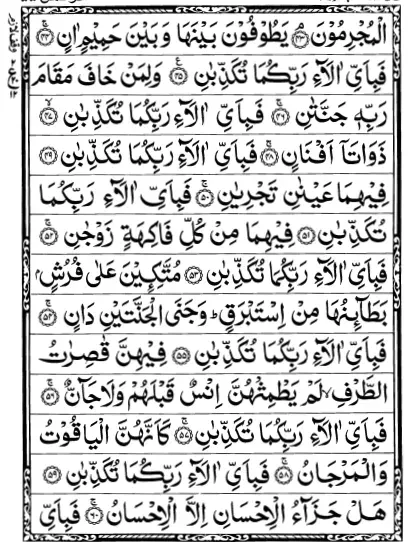 الْمُجْرِمُوْنَ ﴿۴۳﴾ يَطُوْفُوْنَ بَيْنَهَا وَبَيْنَ حَمِيْمٍ اٰنٍ ﴿۴۴﴾
فَبِاَيِّ اٰلَآءِ رَبِّكُمَا تُكَذِّبٰنِ ﴿۴۵﴾ وَلِمَنْ خَافَ مَقَامَ
رَبِّهٖ جَنَّتٰنِ ﴿۴۶﴾ فَبِاَيِّ اٰلَآءِ رَبِّكُمَا تُكَذِّبٰنِ ﴿۴۷﴾
ذَوَاتَاۤ اَفْنَانٍ ﴿۴۸﴾ فَبِاَيِّ اٰلَآءِ رَبِّكُمَا تُكَذِّبٰنِ ﴿۴۹﴾
فِيْهِمَا عَيْنٰنِ تَجْرِيٰنِ ﴿۵۰﴾ فَبِاَيِّ اٰلَآءِ رَبِّكُمَا
تُكَذِّبٰنِ ﴿۵۱﴾ فِيْهِمَا مِنْ كُلِّ فَاكِهَةٍ زَوْجٰنِ ﴿۵۲﴾
فَبِاَيِّ اٰلَآءِ رَبِّكُمَا تُكَذِّبٰنِ ﴿۵۳﴾ مُتَّكِـِٕيْنَ عَلٰى فُرُشٍۢ
بَطَآئِنُهَا مِنْ اِسْتَبْرَقٍ ؕ وَجَنَى الْجَنَّتَيْنِ دَانٍ ﴿۵۴﴾
فَبِاَيِّ اٰلَآءِ رَبِّكُمَا تُكَذِّبٰنِ ﴿۵۵﴾ فِيْهِنَّ قٰصِرٰتُ
الطَّرْفِ ۙ لَمْ يَطْمِثْهُنَّ اِنْسٌ قَبْلَهُمْ وَلَا جَآنٌّ ﴿۵۶﴾
فَبِاَيِّ اٰلَآءِ رَبِّكُمَا تُكَذِّبٰنِ ﴿۵۷﴾ كَاَنَّهُنَّ الْيَاقُوْتُ
وَالْمَرْجَانُ ﴿۵۸﴾ فَبِاَيِّ اٰلَآءِ رَبِّكُمَا تُكَذِّبٰنِ ﴿۵۹﴾
هَلْ جَزَآءُ الْاِحْسَانِ اِلَّا الْاِحْسَانُ ﴿۶۰﴾ فَبِاَيِّ